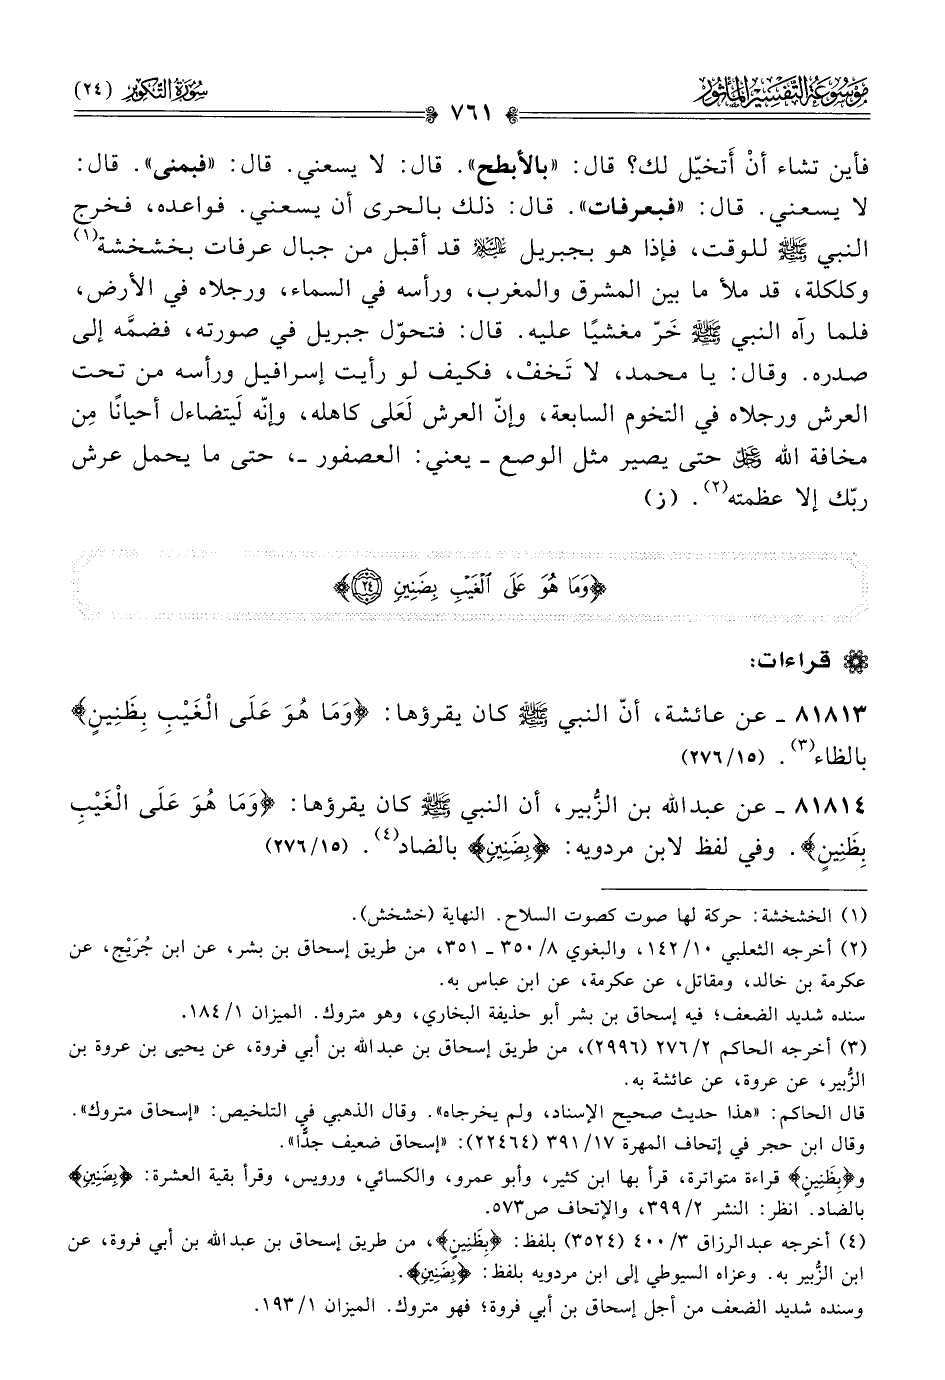 مَوْسُوعَةُ التَّفْسِيرِ المَأْثُور
سُورَةُ التَّكْوِيرِ (٢٤)
٧٦١
فأين تشاء أنْ أَتخيّل لك؟ قال: «بالأبطح». قال: لا يسعني. قال: «فبمنى». قال:
لا يسعني. قال: «فبعرفات». قال: ذلك بالحرى أن يسعني. فواعده، فخرج
النبي ﷺ للوقت، فإذا هو بجبريل عليه السلام قد أقبل من جبال عرفات بخشخشة(١)
وكلكلة، قد ملأ ما بين المشرق والمغرب، ورأسه في السماء، ورجلاه في الأرض،
فلما رآه النبي ﷺ خَرّ مغشيًا عليه. قال: فتحوّل جبريل في صورته، فضمَّه إلى
صدره. وقال: يا محمد، لا تَخفْ، فكيف لو رأيت إسرافيل ورأسه من تحت
العرش ورجلاه في التخوم السابعة، وإنّ العرش لَعَلى كاهله، وإنّه لَيتضاءل أحيانًا مِن
مخافة الله عز وجل حتى يصير مثل الوصع ـ يعني: العصفور ـ، حتى ما يحمل عرش
ربّك إلا عظمته(٢). (ز)
﴿وَمَا هُوَ عَلَى الْغَيْبِ بِضَنِينٍ ٢٤﴾
قراءات:
٨١٨١٣ ـ عن عائشة، أنّ النبي ﷺ كان يقرؤها: ﴿وَمَا هُوَ عَلَى الْغَيْبِ بِظَنِينٍ﴾
بالظاء(٣). (٢٧٦/١٥)
٨١٨١٤ ـ عن عبدالله بن الزُّبير، أن النبي ﷺ كان يقرؤها: ﴿وَمَا هُوَ عَلَى الْغَيْبِ
بِظَنِينٍ﴾. وفي لفظ لابن مردويه: ﴿بِضَنِينٍ﴾ بالضاد(٤). (٢٧٦/١٥)
(١) الخشخشة: حركة لها صوت كصوت السلاح. النهاية (خشخش).
(٢) أخرجه الثعلبي ١٤٢/١٠، والبغوي ٨/ ٣٥٠ ـ ٣٥١، من طريق إسحاق بن بشر، عن ابن جُرَيْج، عن
عكرمة بن خالد، ومقاتل، عن عكرمة، عن ابن عباس به.
سنده شديد الضعف؛ فيه إسحاق بن بشر أبو حذيفة البخاري، وهو متروك. الميزان ١/ ١٨٤.
(٣) أخرجه الحاكم ٢/ ٢٧٦ (٢٩٩٦)، من طريق إسحاق بن عبدالله بن أبي فروة، عن يحيى بن عروة بن
الزُّبير، عن عروة، عن عائشة به.
قال الحاكم: «هذا حديث صحيح الإسناد، ولم يخرجاه». وقال الذهبي في التلخيص: «إسحاق متروك».
وقال ابن حجر في إتحاف المهرة ١٧/ ٣٩١ (٢٢٤٦٤): «إسحاق ضعيف جدًّا».
و﴿بِظَنِينٍ﴾ قراءة متواترة، قرأ بها ابن كثير، وأبو عمرو، والكسائي، ورويس، وقرأ بقية العشرة: ﴿بِضَنِينٍ﴾
بالضاد. انظر: النشر ٢/ ٣٩٩، والإتحاف ص٥٧٣.
(٤) أخرجه عبدالرزاق ٣/ ٤٠٠ (٣٥٢٤) بلفظ: ﴿بِظَنِينٍ﴾، من طريق إسحاق بن عبدالله بن أبي فروة، عن
ابن الزُّبير به. وعزاه السيوطي إلى ابن مردويه بلفظ: ﴿بِضَنِينٍ﴾.
وسنده شديد الضعف من أجل إسحاق بن أبي فروة؛ فهو متروك. الميزان ١/ ١٩٣.